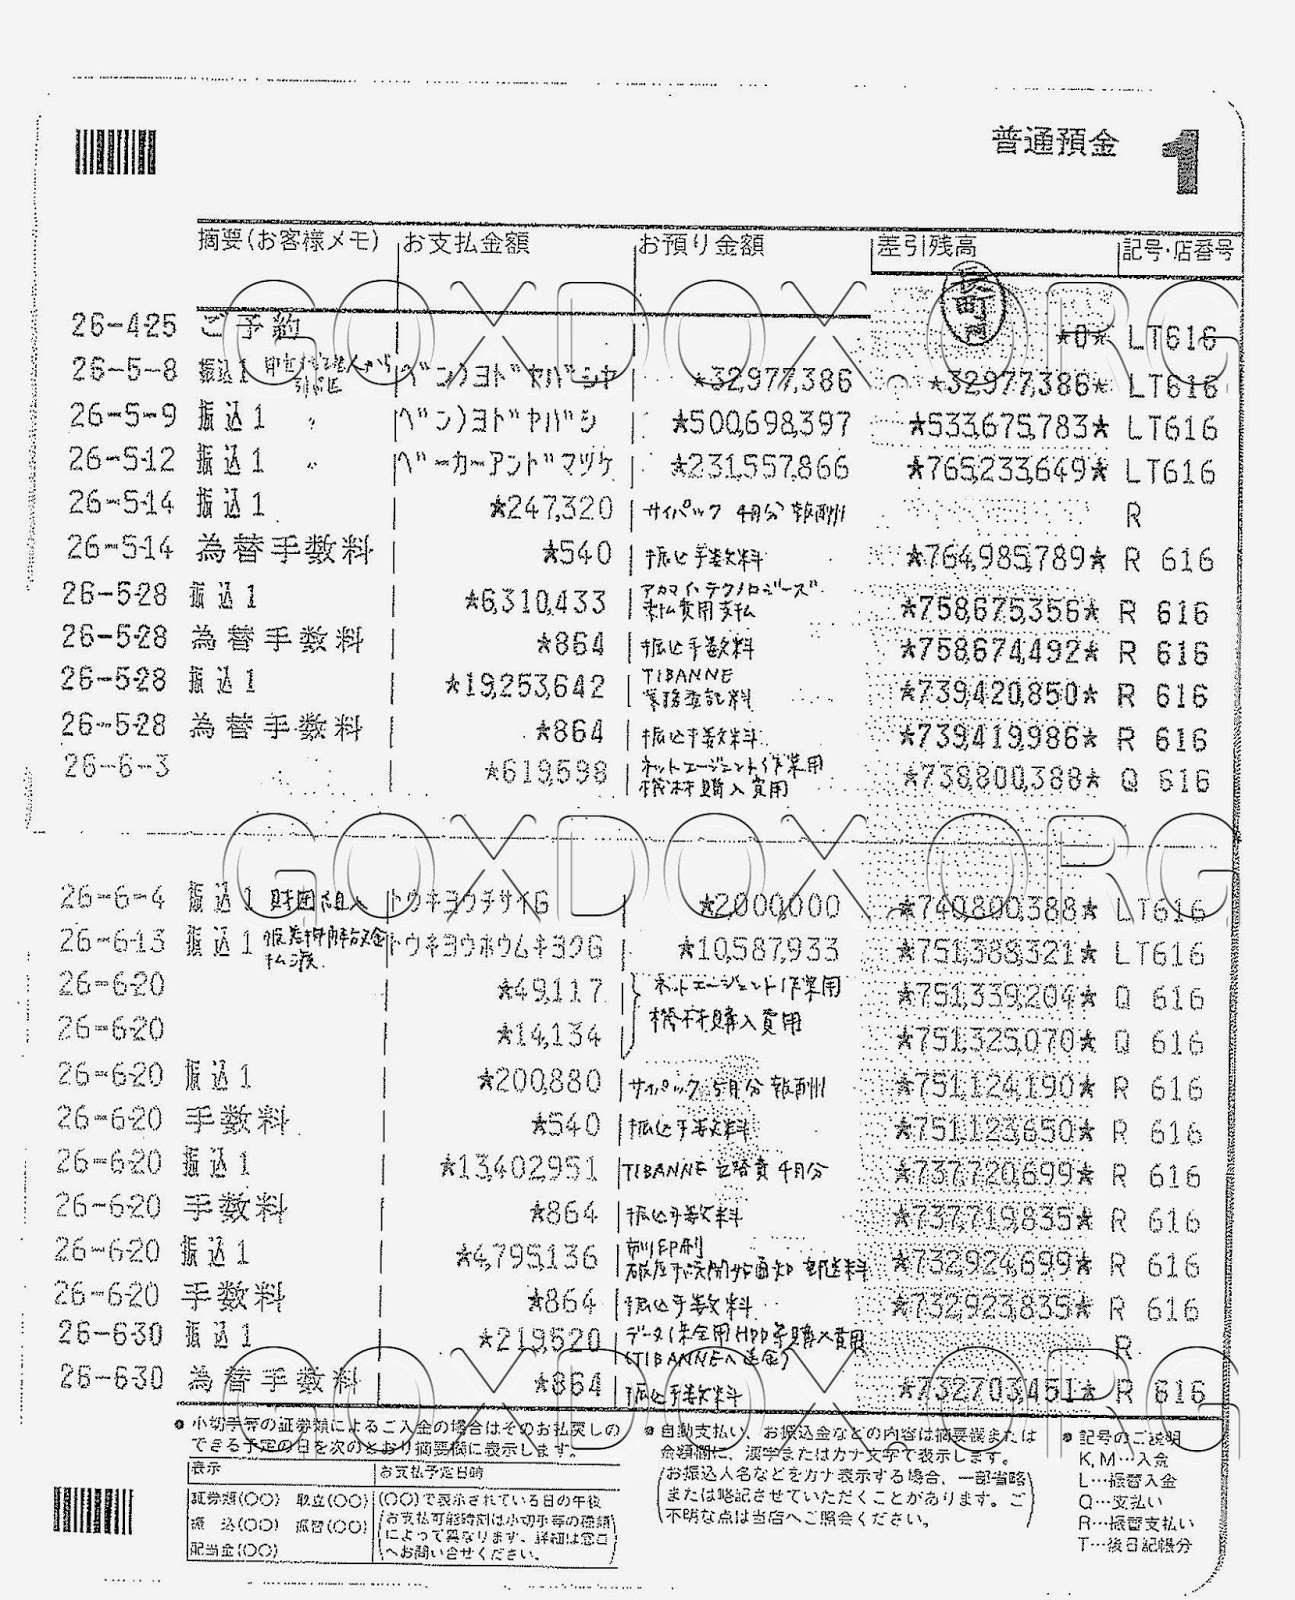 普通預金 1
摘要(お客様メモ) お支払金額 お預り金額 差引残高 記号・店番号
GOXDOX.ORG
26-4-25 ご予約 ★0★ LT616
26-5-8 振込1 ベン)ヨドヤバシヤ ★32,977,386 ★32,977,386★ LT616
26-5-9 振込1 〃 ベン)ヨドヤバシ ★500,698,397 ★533,675,783★ LT616
26-5-12 振込1 〃 ベーカーアンドマツケ ★231,557,866 ★765,233,649★ LT616
26-5-14 振込1 ★247,320 サイパック 4月分報酬 R
26-5-14 為替手数料 ★540 振込手数料 ★764,985,789★ R 616
26-5-28 振込1 ★6,310,433 アカマイ・テクノロジーズ 未払費用支払 ★758,675,356★ R 616
26-5-28 為替手数料 ★864 振込手数料 ★758,674,492★ R 616
26-5-28 振込1 ★19,253,642 TIBANNE 業務委託料 ★739,420,850★ R 616
26-5-28 為替手数料 ★864 振込手数料 ★739,419,986★ R 616
26-6-3 ★619,598 ネットエージェント作業用 機材購入費用 ★738,800,388★ Q 616
GOXDOX.ORG
26-6-4 振込1 財団組入 トウキヨウチサイG ★2,000,000 ★740,800,388★ LT616
26-6-13 振込1 仮差押解放金 払渡 トウキヨウホウムキヨクG ★10,587,933 ★751,388,321★ LT616
26-6-20 ★49,117 ネットエージェント作業用 ★751,339,204★ Q 616
26-6-20 ★14,134 機材購入費用 ★751,325,070★ Q 616
26-6-20 振込1 ★200,880 サイパック 5月分報酬 ★751,124,190★ R 616
26-6-20 手数料 ★540 振込手数料 ★751,123,650★ R 616
26-6-20 振込1 ★13,402,951 TIBANNE 立替費 4月分 ★737,720,699★ R 616
26-6-20 手数料 ★864 振込手数料 ★737,719,835★ R 616
26-6-20 振込1 ★4,795,136 破産手続開始通知 郵送料 ★732,924,699★ R 616
26-6-20 手数料 ★864 振込手数料 ★732,923,835★ R 616
26-6-30 振込1 ★219,520 データ保全用HDD等購入費用 (TIBANNEへ送金) R
GOXDOX.ORG
26-6-30 為替手数料 ★864 振込手数料 ★732,703,451★ R 616
●小切手等の証券類によるご入金の場合はそのお払戻しの
できる予定の日を次のとおり摘要欄に表示します。
表示 お支払予定日時
証券類(〇〇) 取立(〇〇) (〇〇)で表示されている日の午後
振 込(〇〇) 振替(〇〇) (お支払可能時刻は小切手等の種類
によって異なります。詳細は窓口
配当金(〇〇) へお問い合せください。)
●自動支払い、お振込金などの内容は摘要欄または
金額欄に、漢字またはカナ文字で表示します。
(お振込人名などをカナ表示する場合、一部省略
または略記させていただくことがあります。ご
不明な点は当店へご照会ください。)
●記号のご説明
K,M…入金
L…振替入金
Q…支払い
R…振替支払い
T…後日記帳分